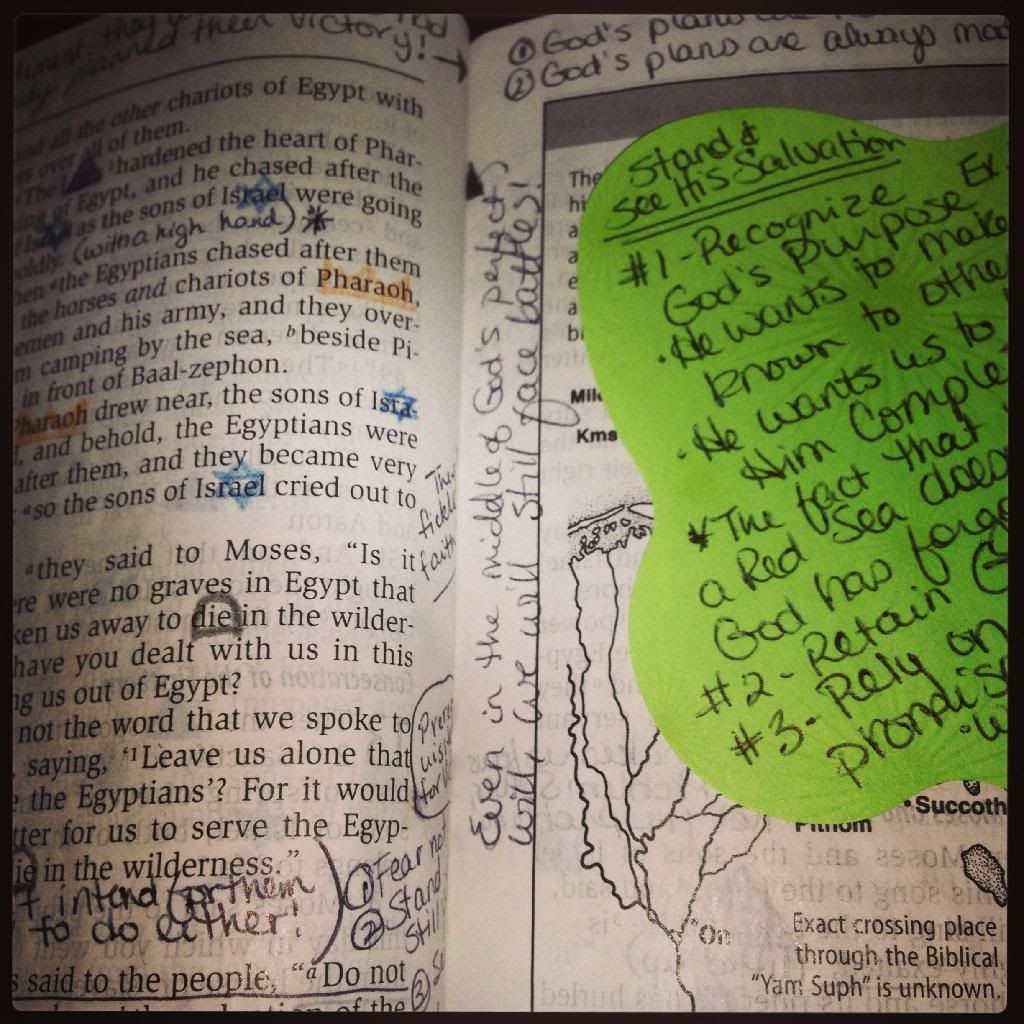 planned their victory!
and all the other chariots of Egypt with
over all of them.
hardened the heart of Phar-
of Egypt, and he chased after the
as the sons of Israel were going
boldly. (with a high hand) *
the Egyptians chased after them
the horses and chariots of Pharaoh,
emen and his army, and they over-
m camping by the sea, b beside Pi-
in front of Baal-zephon.
Pharaoh drew near, the sons of Isra-
, and behold, the Egyptians were
after them, and they became very
a so the sons of Israel cried out to
a they said to Moses, “Is it
re were no graves in Egypt that
ken us away to die in the wilder-
have you dealt with us in this
ng us out of Egypt?
not the word that we spoke to
saying, ‘1Leave us alone that
the Egyptians’? For it would
tter for us to serve the Egyp-
in the wilderness.”
intend for them
to do either!
① Fear no
② Stand
still
③
said to the people, “a Do not
of the
fickle
faith
Even in the middle of God's perfect
will, we will still face battles!
① God's plans
② God's plans are always
The
hi
a
a
e
a
b
Kms
Stand &
see His Salvation
#1 - Recognize Ex.
God's purpose
• He wants to make
known to othe
• He wants us to
Him Comple
* The fact that
a Red Sea does
God has forgo
#2 - Retain
#3 - Rely on
promise
• Succoth
Pithom
On
Exact crossing place
through the Biblical
"Yam Suph" is unknown.